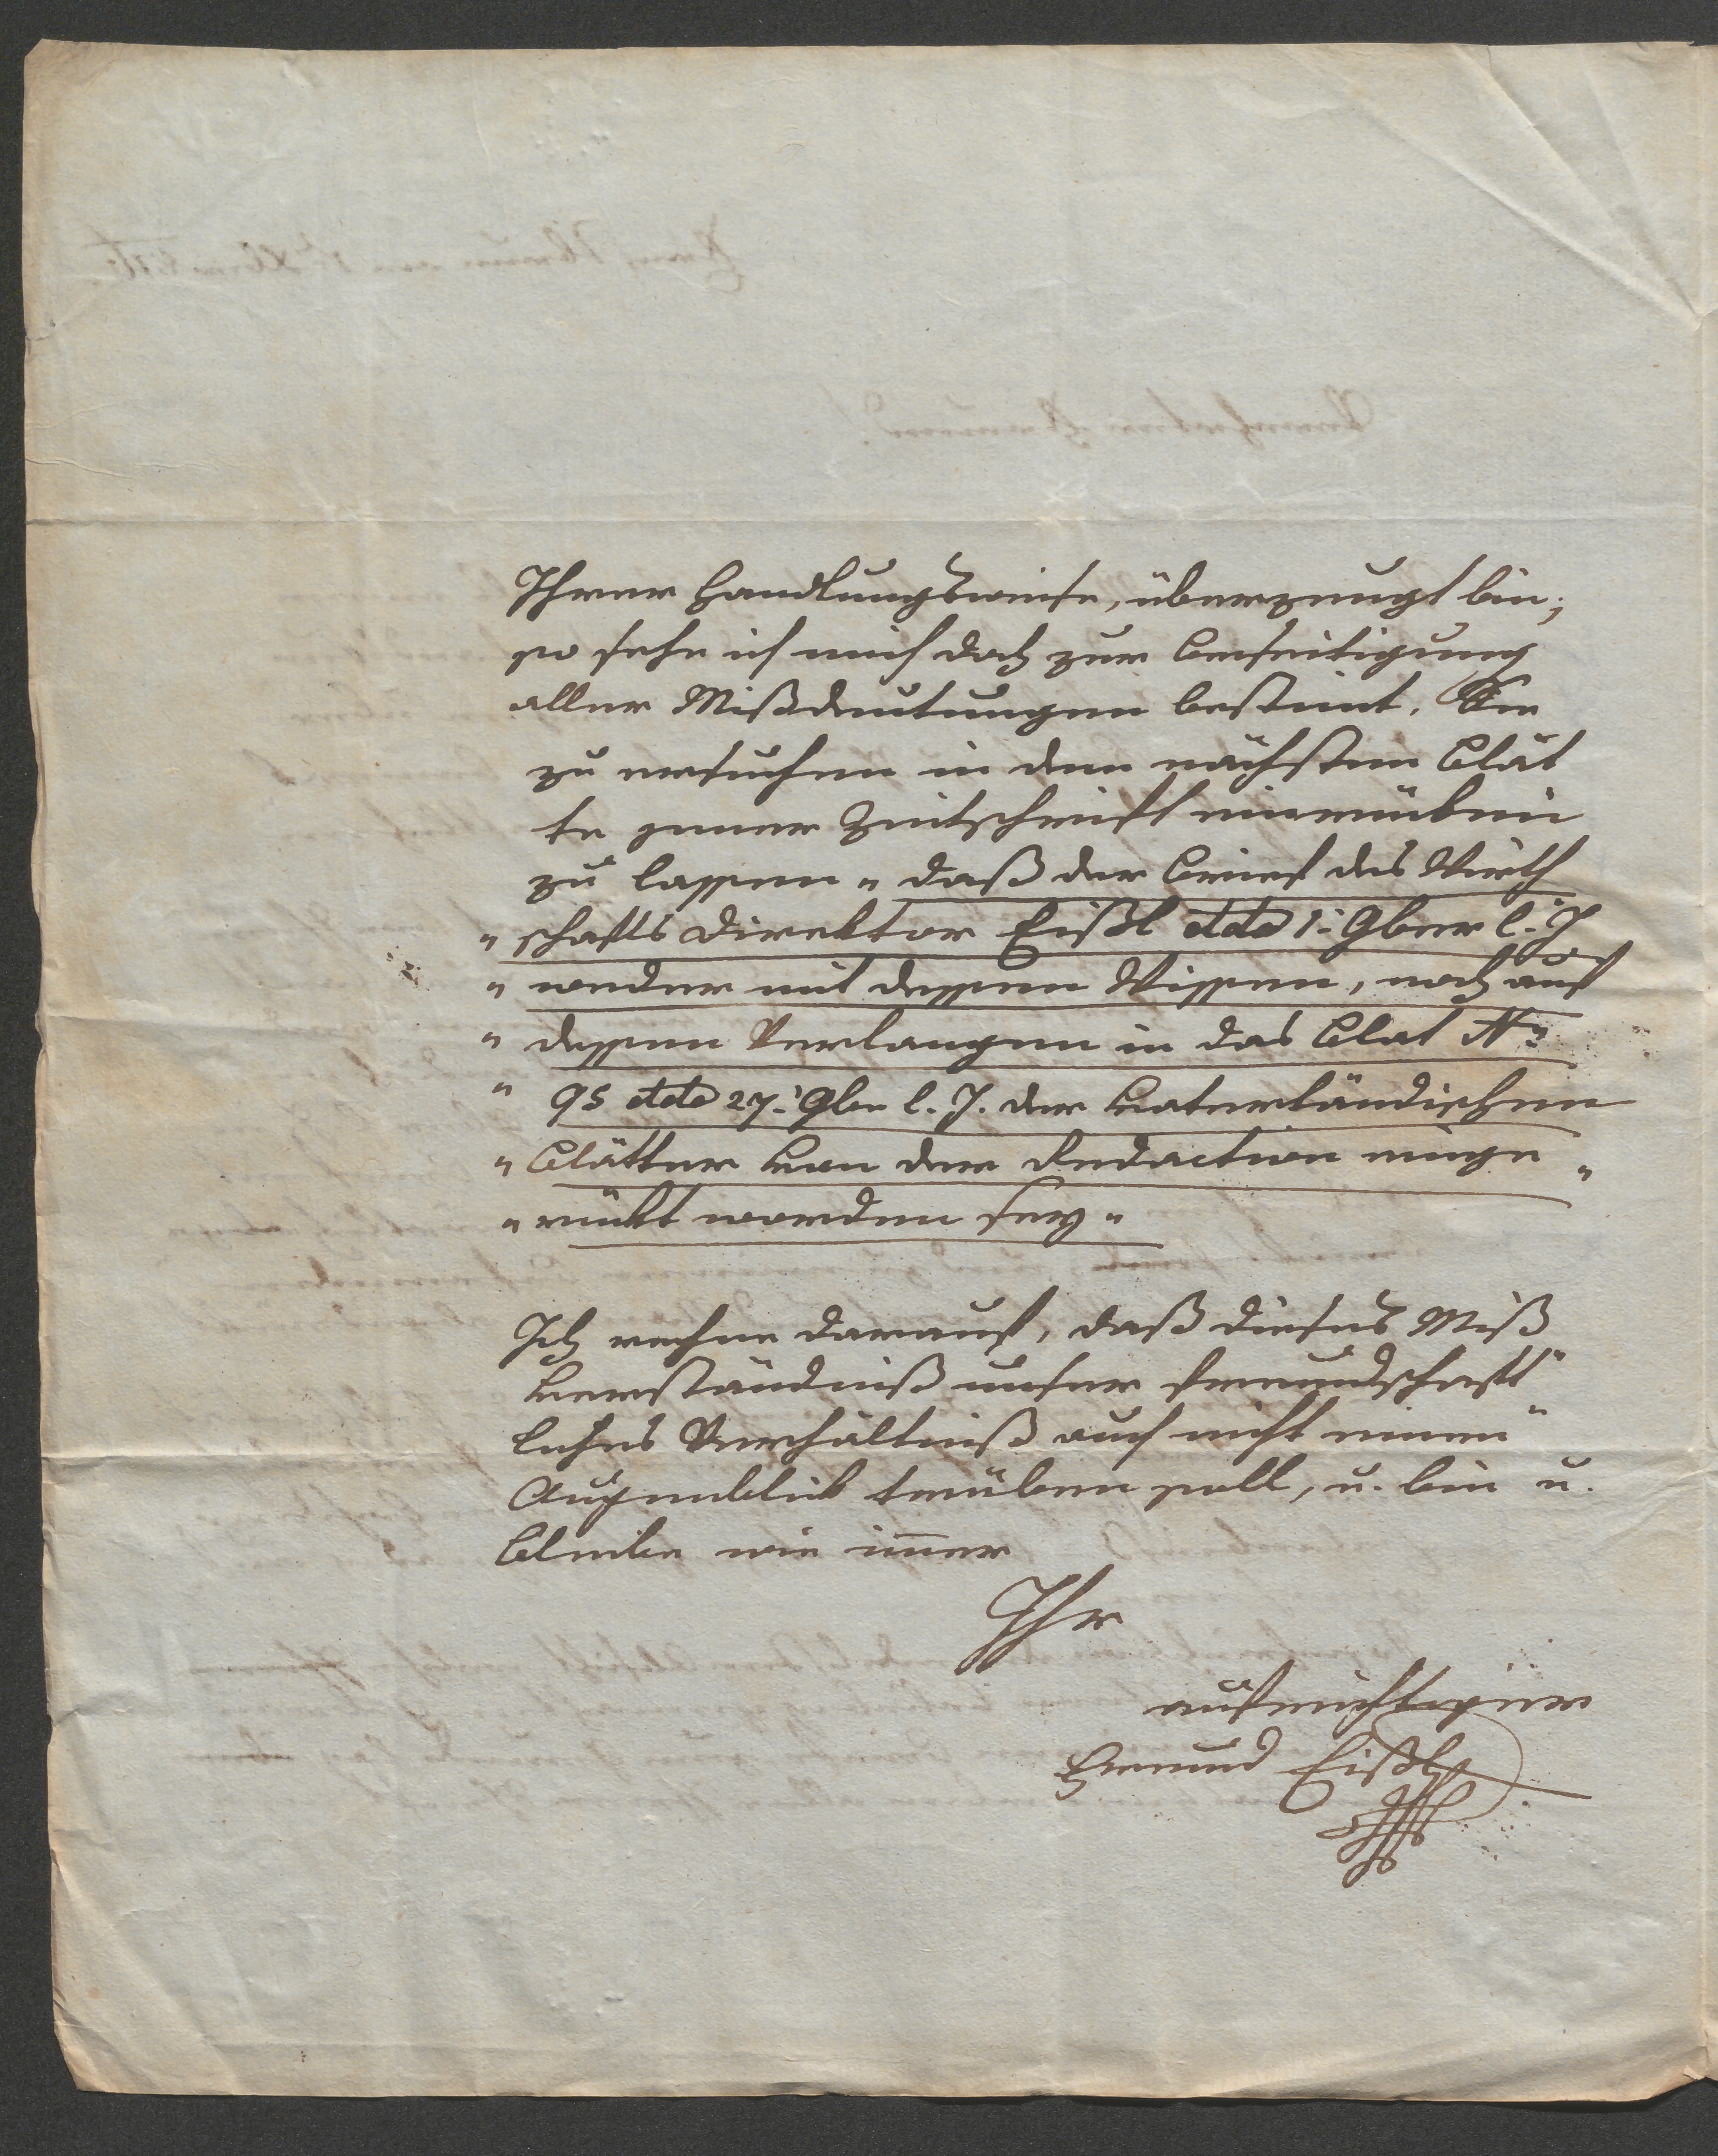 Ihrer Handlungsweise, überzeugt bin;
so sehe ich mich doch zur Beseitigung
aller Mißdeutungen bestimt. Sie
zu ersuchen in dem nächsten Blat
te jener Zeitschrift einrücken
zu lassen „ daß der Brief des Wirth
„ schafts Direktor Eißl ddo 1: 9ber l. J
„ weder mit dessen Wissen, noch auf
„ dessen Verlangen in das Blat No
„ 95 ddo 27: 9ber l. J. der Vaterländischen
„ Blätter von der Redaction einge „
„ rückt worden sey „
Ich rechne darauf, daß dieses Miß
verständniß unser freundschaft„
liches Verhältniß auch nicht einen
Augenblick trüben soll, u. bin u.
bleibe wie im̅er
Ihr
aufrichtiger
Freund Eißl